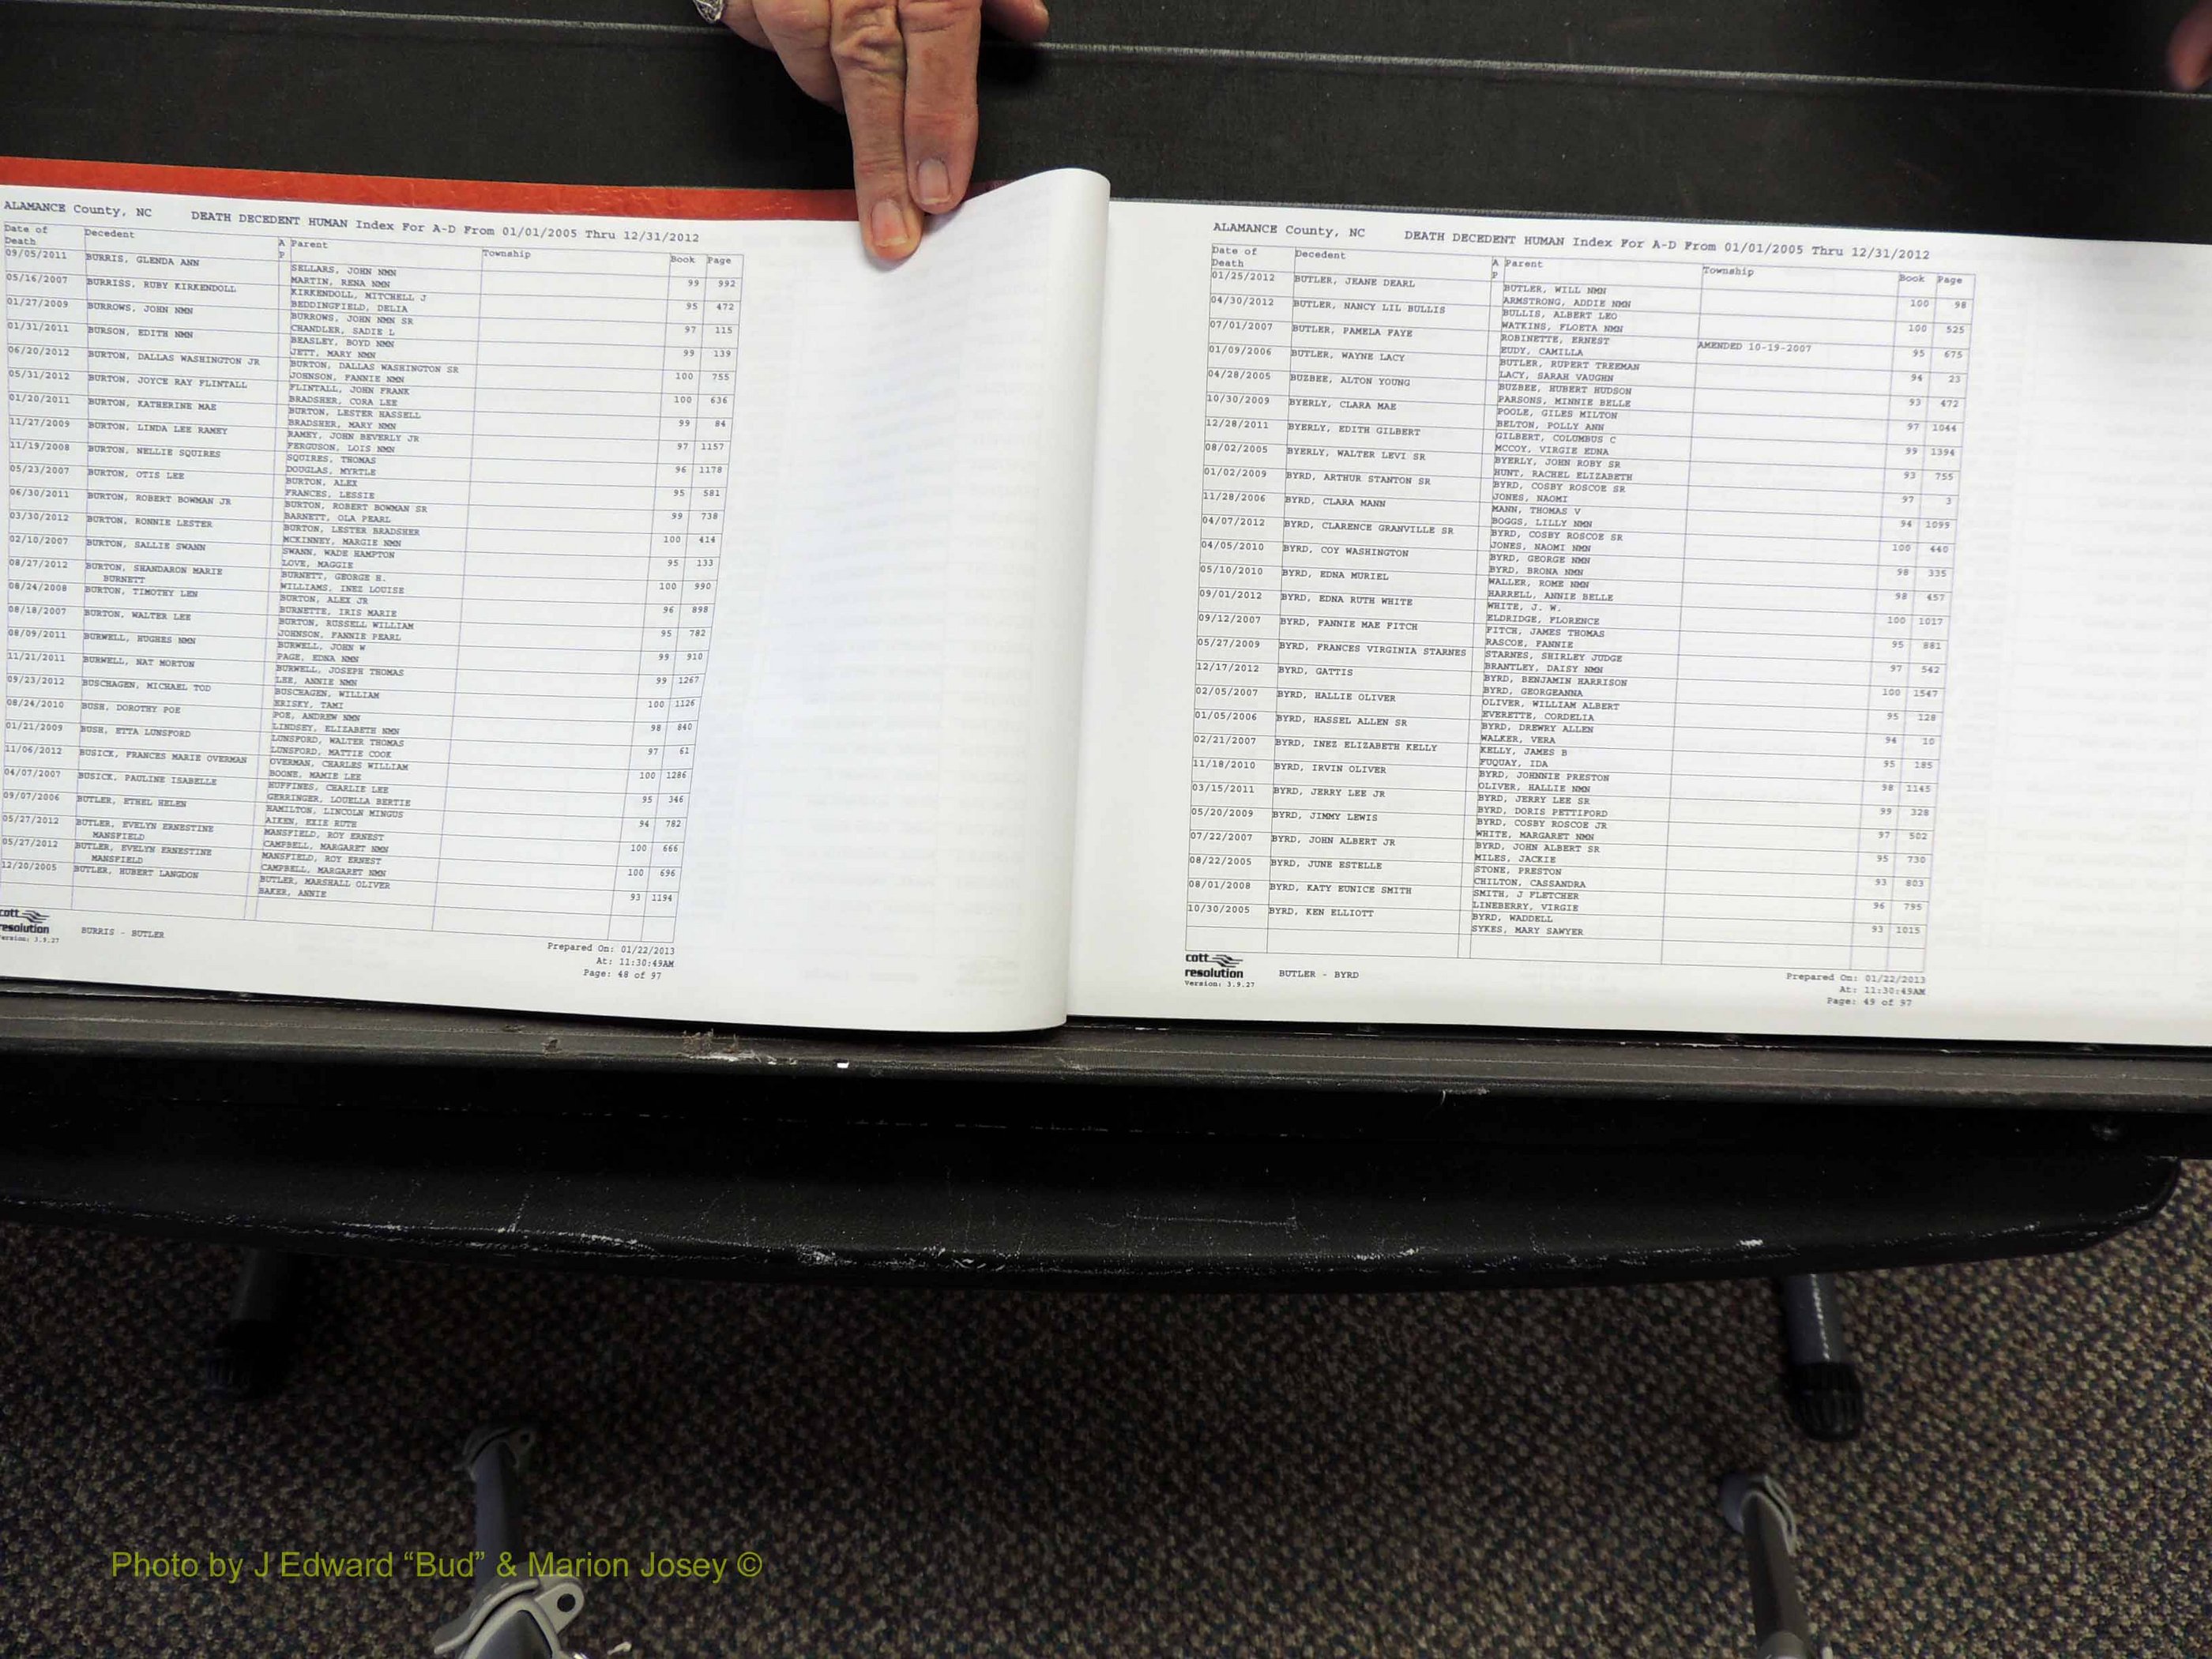 ALAMANCE County, NC DEATH DECEDENT HUMAN Index For A-D From 01/01/2005 Thru 12/31/2012
Date of Death Decedent A P Parent Township Book Page
09/05/2011 BURRIS, GLENDA ANN SELLARS, JOHN NMN
MARTIN, RENA NMN 99 992
05/16/2007 BURRISS, RUBY KIRKENDOLL KIRKENDOLL, MITCHELL J
BEDDINGFIELD, DELIA 95 472
01/27/2009 BURROWS, JOHN NMN BURROWS, JOHN NMN SR
CHANDLER, SADIE L 97 115
01/31/2011 BURSON, EDITH NMN BEASLEY, BOYD NMN
JETT, MARY NMN 99 139
06/20/2012 BURTON, DALLAS WASHINGTON JR BURTON, DALLAS WASHINGTON SR
JOHNSON, FANNIE NMN 100 755
05/31/2012 BURTON, JOYCE RAY FLINTALL FLINTALL, JOHN FRANK
BRADSHER, CORA LEE 100 636
01/20/2011 BURTON, KATHERINE MAE BURTON, LESTER HASSELL
BRADSHER, MARY NMN 99 84
11/27/2009 BURTON, LINDA LEE RAMEY RAMEY, JOHN BEVERLY JR
FERGUSON, LOIS NMN 97 1157
11/19/2008 BURTON, NELLIE SQUIRES SQUIRES, THOMAS
DOUGLAS, MYRTLE 96 1178
05/23/2007 BURTON, OTIS LEE BURTON, ALEX
FRANCES, LESSIE 95 581
06/30/2011 BURTON, ROBERT BOWMAN JR BURTON, ROBERT BOWMAN SR
BARNETT, OLA PEARL 99 738
03/30/2012 BURTON, RONNIE LESTER BURTON, LESTER BRADSHER
MCKINNEY, MARGIE NMN 100 414
02/10/2007 BURTON, SALLIE SWANN SWANN, WADE HAMPTON
LOVE, MAGGIE 95 133
08/27/2012 BURTON, SHANDARON MARIE BURNETT, GEORGE H.
BURNETT WILLIAMS, INEZ LOUISE 100 990
08/24/2008 BURTON, TIMOTHY LEN BURTON, ALEX JR
BURNETTE, IRIS MARIE 96 898
08/18/2007 BURTON, WALTER LEE BURTON, RUSSELL WILLIAM
JOHNSON, FANNIE PEARL 95 782
08/09/2011 BURWELL, HUGHES NMN BURWELL, JOHN W
PAGE, EDNA NMN 99 910
11/21/2011 BURWELL, NAT MORTON BURWELL, JOSEPH THOMAS
LEE, ANNIE NMN 99 1267
09/23/2012 BUSCHAGEN, MICHAEL TOD BUSCHAGEN, WILLIAM
ERISKY, TAMI 100 1126
08/24/2010 BUSH, DOROTHY POE POE, ANDREW NMN
LINDSEY, ELIZABETH NMN 98 840
01/21/2009 BUSH, ETTA LUNSFORD LUNSFORD, WALTER THOMAS
LUNSFORD, MATTIE COOK 97 61
11/06/2012 BUSICK, FRANCES MARIE OVERMAN OVERMAN, CHARLES WILLIAM
BOONE, MAMIE LEE 100 1286
04/07/2007 BUSICK, PAULINE ISABELLE HUFFINES, CHARLIE LEE
GERRINGER, LOUELLA BERTIE 95 346
09/07/2006 BUTLER, ETHEL HELEN HAMILTON, LINCOLN MINGUS
AIKEN, EXIE RUTH 94 782
05/27/2012 BUTLER, EVELYN ERNESTINE MANSFIELD, ROY ERNEST
MANSFIELD CAMPBELL, MARGARET NMN 100 666
05/27/2012 BUTLER, EVELYN ERNESTINE MANSFIELD, ROY ERNEST
MANSFIELD CAMPBELL, MARGARET NMN 100 696
12/20/2005 BUTLER, HUBERT LANGDON BUTLER, MARSHALL OLIVER
BAKER, ANNIE 93 1194
cott
resolution
Version: 3.9.27
BURRIS - BUTLER
Prepared On: 01/22/2013
At: 11:30:49AM
Page: 48 of 97
ALAMANCE County, NC DEATH DECEDENT HUMAN Index For A-D From 01/01/2005 Thru 12/31/2012
Date of Death Decedent A P Parent Township Book Page
01/25/2012 BUTLER, JEANE DEARL BUTLER, WILL NMN
ARMSTRONG, ADDIE NMN 100 98
04/30/2012 BUTLER, NANCY LIL BULLIS BULLIS, ALBERT LEO
WATKINS, FLOETA NMN 100 525
07/01/2007 BUTLER, PAMELA FAYE ROBINETTE, ERNEST AMENDED 10-19-2007
EUDY, CAMILLA 95 675
01/09/2006 BUTLER, WAYNE LACY BUTLER, RUPERT TREEMAN
LACY, SARAH VAUGHN 94 23
04/28/2005 BUZBEE, ALTON YOUNG BUZBEE, HUBERT HUDSON
PARSONS, MINNIE BELLE 93 472
10/30/2009 BYERLY, CLARA MAE POOLE, GILES MILTON
BELTON, POLLY ANN 97 1044
12/28/2011 BYERLY, EDITH GILBERT GILBERT, COLUMBUS C
MCCOY, VIRGIE EDNA 99 1394
08/02/2005 BYERLY, WALTER LEVI SR BYERLY, JOHN ROBY SR
HUNT, RACHEL ELIZABETH 93 755
01/02/2009 BYRD, ARTHUR STANTON SR BYRD, COSBY ROSCOE SR
JONES, NAOMI 97 3
11/28/2006 BYRD, CLARA MANN MANN, THOMAS V
BOGGS, LILLY NMN 94 1099
04/07/2012 BYRD, CLARENCE GRANVILLE SR BYRD, COSBY ROSCOE SR
JONES, NAOMI NMN 100 440
04/05/2010 BYRD, COY WASHINGTON BYRD, GEORGE NMN
BYRD, BRONA NMN 98 335
05/10/2010 BYRD, EDNA MURIEL WALLER, ROME NMN
HARRELL, ANNIE BELLE 98 457
09/01/2012 BYRD, EDNA RUTH WHITE WHITE, J. W.
ELDRIDGE, FLORENCE 100 1017
09/12/2007 BYRD, FANNIE MAE FITCH FITCH, JAMES THOMAS
RASCOE, FANNIE 95 881
05/27/2009 BYRD, FRANCES VIRGINIA STARNES STARNES, SHIRLEY JUDGE
BRANTLEY, DAISY NMN 97 542
12/17/2012 BYRD, GATTIS BYRD, BENJAMIN HARRISON
BYRD, GEORGEANNA 100 1547
02/05/2007 BYRD, HALLIE OLIVER OLIVER, WILLIAM ALBERT
EVERETTE, CORDELIA 95 128
01/05/2006 BYRD, HASSEL ALLEN SR BYRD, DREWRY ALLEN
WALKER, VERA 94 10
02/21/2007 BYRD, INEZ ELIZABETH KELLY KELLY, JAMES B
FUQUAY, IDA 95 185
11/18/2010 BYRD, IRVIN OLIVER BYRD, JOHNNIE PRESTON
OLIVER, HALLIE NMN 98 1145
03/15/2011 BYRD, JERRY LEE JR BYRD, JERRY LEE SR
BYRD, DORIS PETTIFORD 99 328
05/20/2009 BYRD, JIMMY LEWIS BYRD, COSBY ROSCOE JR
WHITE, MARGARET NMN 97 502
07/22/2007 BYRD, JOHN ALBERT JR BYRD, JOHN ALBERT SR
MILES, JACKIE 95 730
08/22/2005 BYRD, JUNE ESTELLE STONE, PRESTON
CHILTON, CASSANDRA 93 803
08/01/2008 BYRD, KATY EUNICE SMITH SMITH, J FLETCHER
LINEBERRY, VIRGIE 96 795
10/30/2005 BYRD, KEN ELLIOTT BYRD, WADDELL
SYKES, MARY SAWYER 93 1015
cott
resolution
Version: 3.9.27
BUTLER - BYRD
Prepared On: 01/22/2013
At: 11:30:49AM
Page: 49 of 97
Photo by J Edward “Bud” & Marion Josey ©